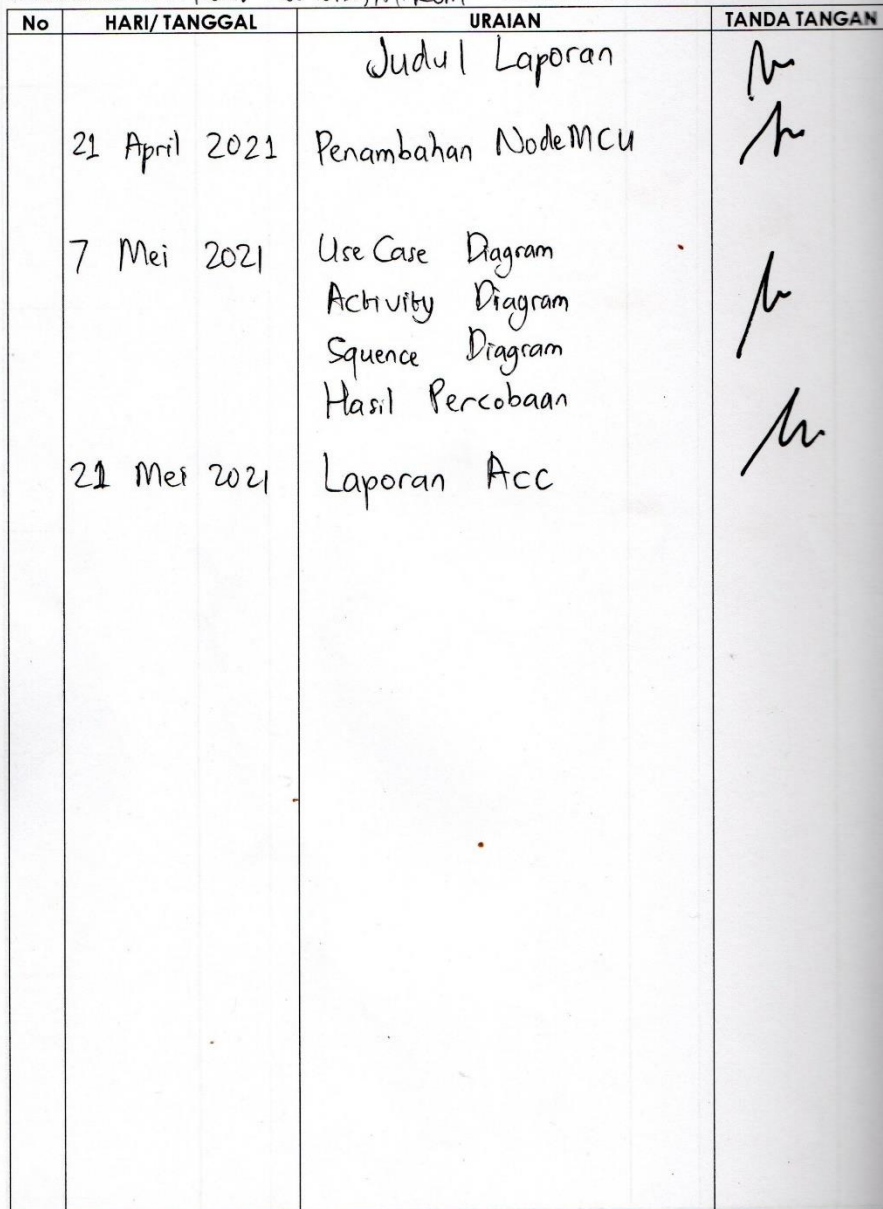 No HARI/ TANGGAL URAIAN TANDA TANGAN
Judul Laporan
21 April 2021 Penambahan NodeMCU
7 Mei 2021 Use Case Diagram
Activity Diagram
Squence Diagram
Hasil Percobaan
21 Mei 2021 Laporan Acc